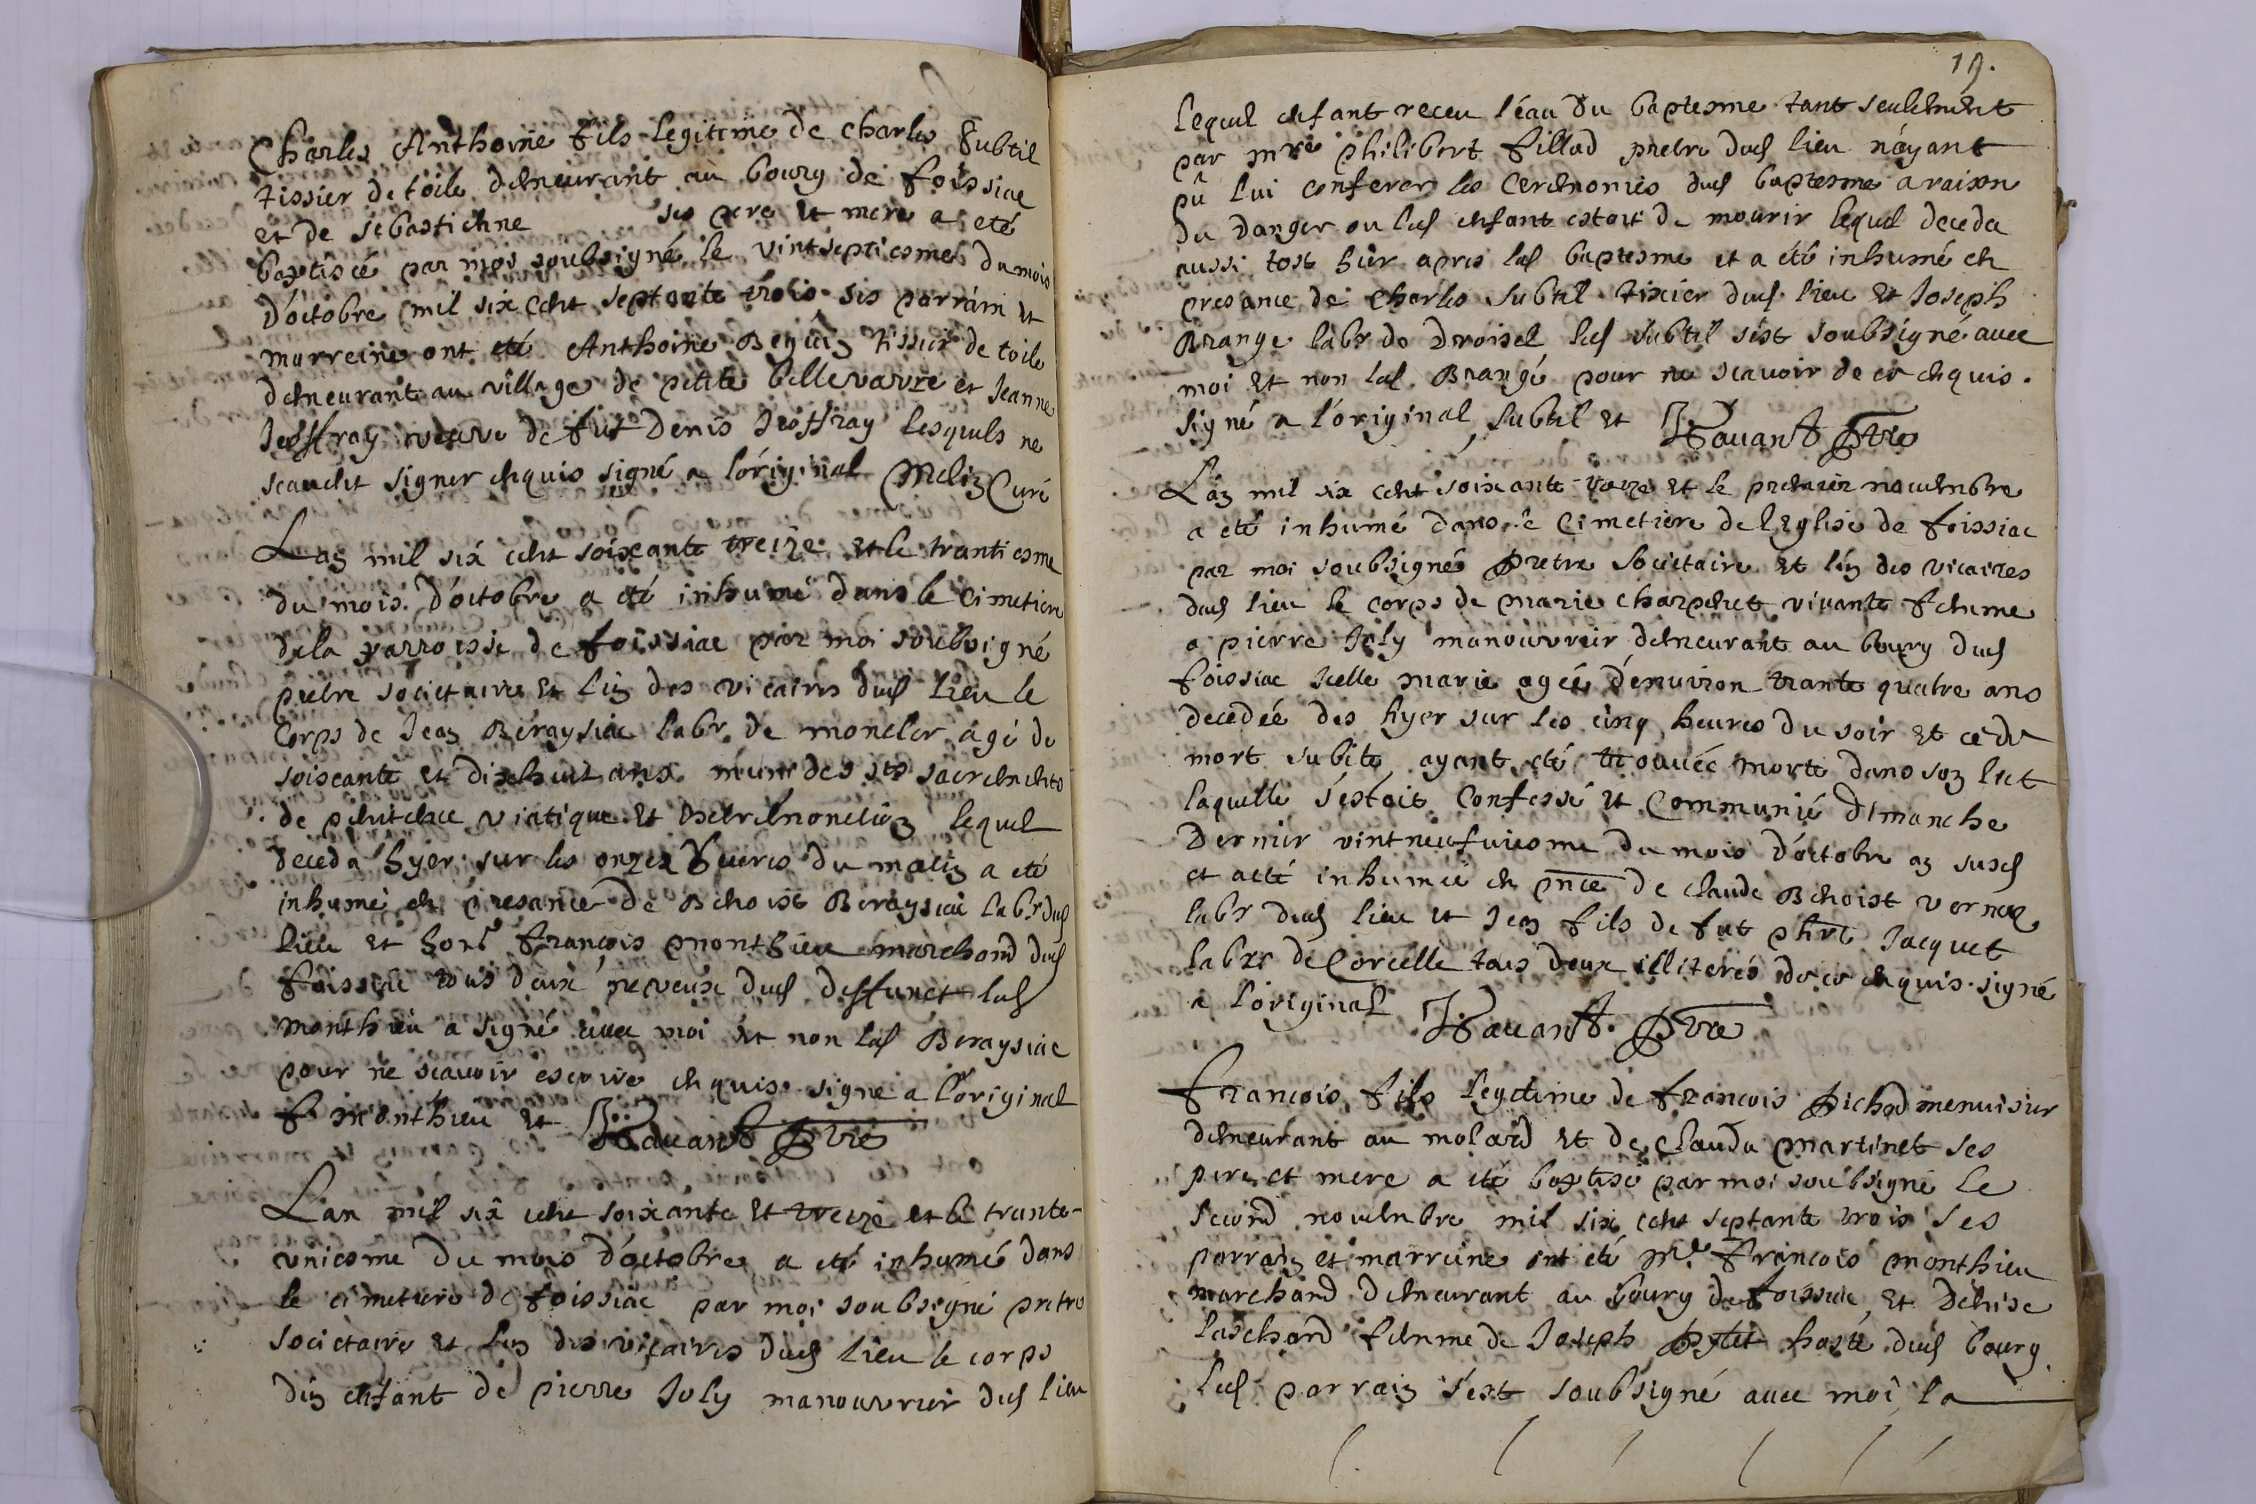 Charles Anthoine fils legitime de charles Subtil
tissier de toile demeurant au bourg de foissiac
et de sebastienne ses pere et mere a eté
baptisé par moi soubsigné le vintseptiesme du mois
d'octobre mil six cent septante trois ses parrain et
marreine ont eté Anthoine tissier de toile
demeurant au village de petite bellevavre et Jeanne
Jeoffray veuve de fut Denis Jeoffray lesquels ne
scavent signer enquis signé a l'original Curé
Lan mil six cent soixante treize et le trantiesme
du mois d'octobre a eté inhumé dans le cimetiere
de la parroisse de foissiac par moi soubsigné
pretre societaire et l'un des vicaires dud lieu le
Corps de Jean Beraysiac labr de moncler agé de
soixante et dixhuit ans muni des sts sacrements
de penitence viatique et lequel
deceda hyer sur les onzes heures du matin a eté
inhumé en presance de Benoist Beraysiac labr dud
lieu et honr françois monthieu marchand dud
foissiac tous deux neveux dud deffunct led
monthieu a signé avec moi et non led Beraysiac
pour ne scavoir escrire enquis signé a l'original
f monthieu et Ravant Ptre
Lan mil six cent soixante et treize et le trante-
uniesme du mois d'octobre a eté inhumé dans
le cimetiere de foissiac par moi soubsigné pretre
societaire et l'un des vicaires dud lieu le corps
d'un enfant de pierre Joly manouvrier dud lieu
19.
lequel enfant receu l'eau du baptesme tant seulement
par mre philibert fillod pretre dud lieu n'ayant
pû lui conferer les ceremonies dud baptesme a raison
du danger ou led enfant estoit de mourir lequel deceda
aussi tost hier apres led baptesme et a eté inhumé en
presance de charles subtil tixier dud lieu et Joseph
Brange labr de Droisel led subtil s'est soubsigné avec
moi et non led Brangé pour ne scavoir de ce enquis.
signé a l'original, subtil et Ravant Ptre
Lan mil six cent soixante treze et le premier novembre
a eté inhumé dans le Cimetiere de l'Eglise de foissiac
par moi soubsigné Pretre societaire et l'un des vicaires
dud lieu le corps de marie charpenet vivante femme
a pierre Joly manouvreir demeurant au bourg dud
foissiac icelle marie agée d'environ trante quatre ans
decedée des hyer sur les cinq heures du soir et ce de
mort subite ayant eté trouvée morte dans son lict
laquelle s'estoit Confessé et Communié dimanche
Dernier vintneufviesme du mois d'octobre an susd
et a eté inhumée en pnce de claude Benoist
labr dud lieu et Jean fils de fut Jacquet
labrs de Corcelle tous deux illiterés de ce enquis signé
a l'original Ravant Ptre
francois fils legitime de francois Pichod menuisier
demeurant au molard et de Clauda martinet ses
pere et mere a eté baptisé par moi soubsigné le
second novembre mil six cent septante trois ses
parrain et marreine ont eté Mr. francois monthieu
marchand demeurant au bourg de foissiac et Denise
Laschard femme de Joseph hoste dud bourg
led parrain s'est soubsigné avec moi la